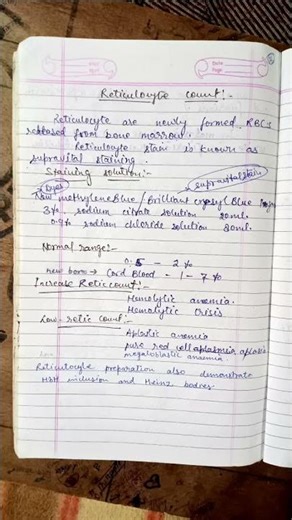 Reticulocyte count:-
Reticulocyte are newly formed RBCs
released from bone marrow.
Reticulocyte stain is known as
supravital staining.
Staining solution:-
Dyes
supravital stain
New methylene Blue / Brilliant cresyl Blue
3% sodium citrate solution 20ml.
0.9% sodium chloride solution 80ml.
Normal range:-
0.5 - 2%
new born → Cord Blood - 1 - 7%
Increase Retic count:-
Hemolytic anemia.
Hemolytic Crisis
Low retic count:-
Aplastic anemia
pure red cell aplasia
megaloblastic anaemia
Reticulocyte preparation also demonstrate
HbH inclusion and Heinz bodies.